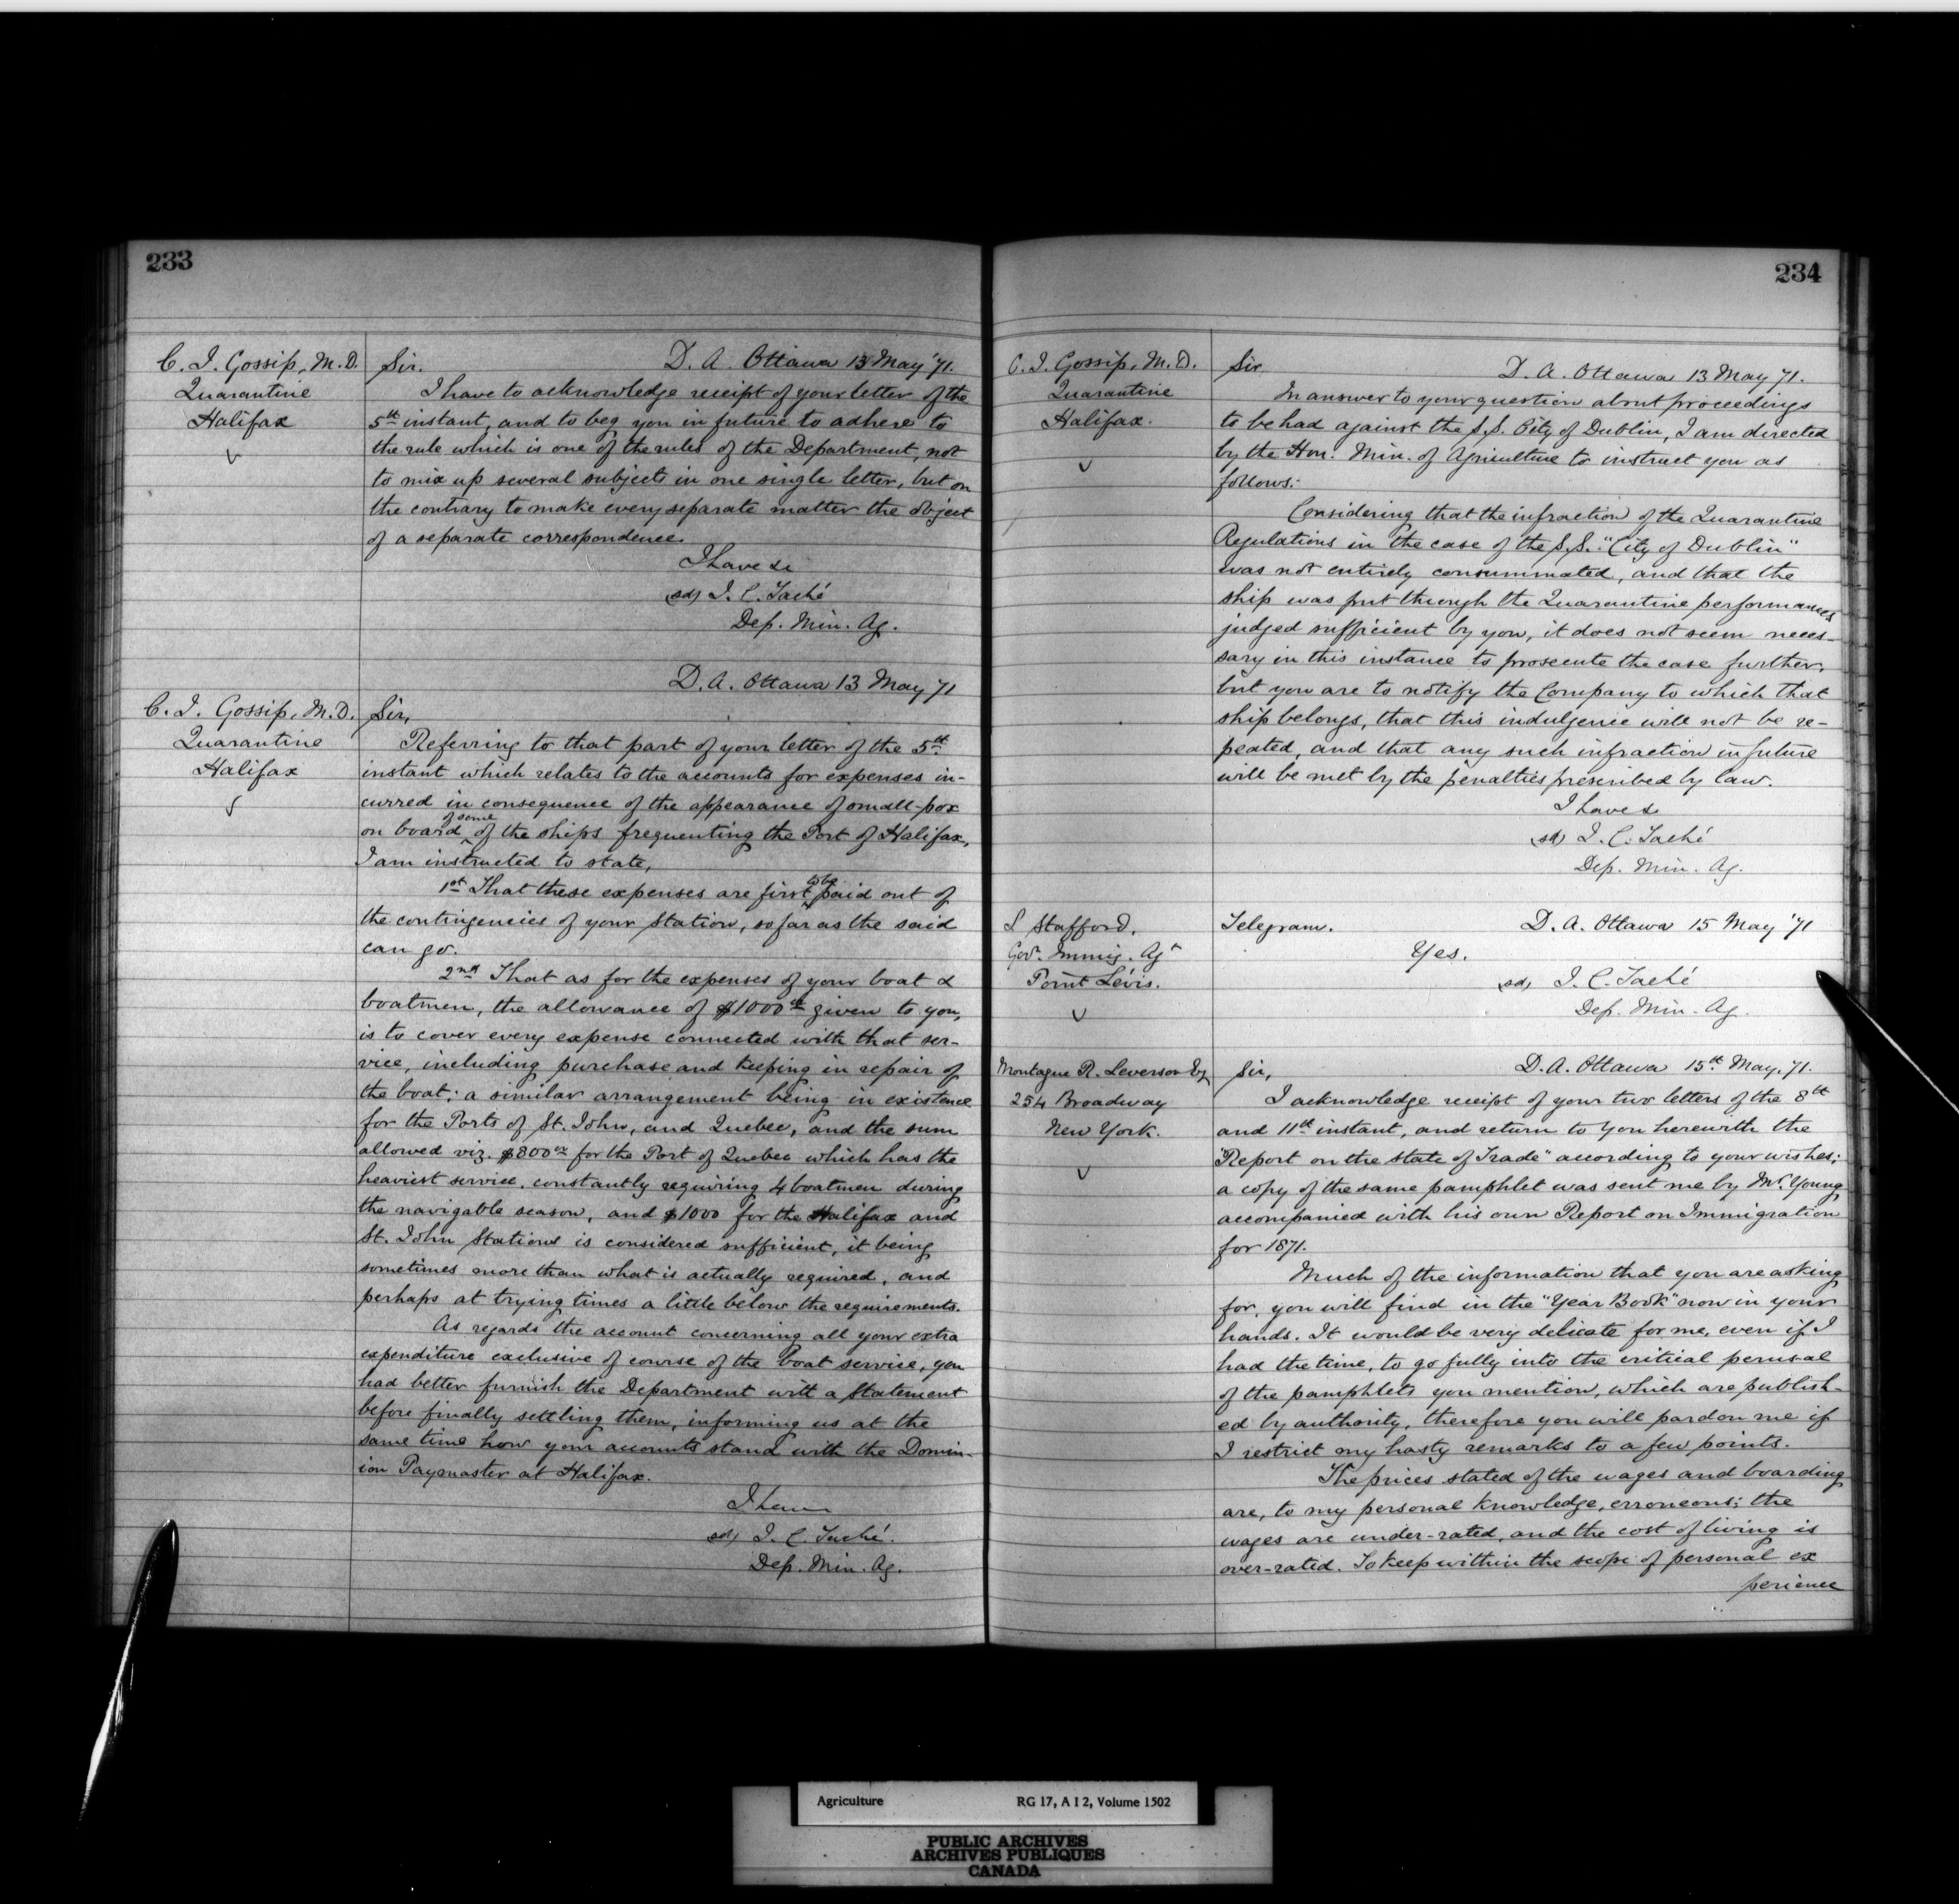 233
C. I. Gossip, M.D.
Quarantine
Halifax
Sir. D. A. Ottawa 13 May '71.
I have to acknowledge receipt of your letter of the
5th instant, and to beg you in future to adhere to
the rule which is one of the rules of the Department, not
to mix up several subjects in one single letter, but on
the contrary to make every separate matter the object
of a separate correspondence.
I have &c
(sd) J. C. Taché
Dep. Min. Ag.
D. A. Ottawa 13 May 71
C. I. Gossip, M.D.
Quarantine
Halifax
Sir,
Referring to that part of your letter of the 5th
instant which relates to the accounts for expenses in-
curred in consequence of the appearance of small-pox
on board of some of the ships frequenting the Port of Halifax,
I am instructed to state,
1st That these expenses are first to be paid out of
the contingencies of your Station, so far as the said
can go.
2nd That as for the expenses of your boat &
boatmen, the allowance of $1000 given to you,
is to cover every expense connected with that ser-
vice, including purchase and keeping in repair of
the boat; a similar arrangement being in existence
for the Ports of St. John, and Quebec, and the sum
allowed viz. $800 for the Port of Quebec which has the
heaviest service, constantly requiring 4 boatmen during
the navigable season, and $1000 for the Halifax and
St. John Stations is considered sufficient, it being
sometimes more than what is actually required, and
perhaps at trying times a little below the requirements.
As regards the account concerning all your extra
expenditure exclusive of course of the boat service, you
had better furnish the Department with a Statement
before finally settling them, informing us at the
same time how your accounts stand with the Domin-
ion Paymaster at Halifax.
I have
sd) J. C. Taché.
Dep. Min. Ag.
234
C. I. Gossip, M.D.
Quarantine
Halifax.
Sir D. A. Ottawa 13 May 71.
In answer to your question about proceedings
to be had against the S.S. City of Dublin, I am directed
by the Hon. Min. of Agriculture to instruct you as
follows:
Considering that the infraction of the Quarantine
Regulations in the case of the S.S. "City of Dublin"
was not entirely consummated, and that the
ship was put through the Quarantine performances
judged sufficient by you, it does not seem neces-
sary in this instance to prosecute the case further,
but you are to notify the Company to which that
ship belongs, that this indulgence will not be re-
peated, and that any such infraction in future
will be met by the penalties prescribed by law.
I have &c
(sd) J. C. Taché
Dep. Min. Ag.
L Stafford,
Govt. Immig. Agt
Point Lévis.
Telegram. D. A. Ottawa 15 May '71
Yes.
(sd) J. C. Taché
Dep. Min. Ag.
Montague R. Leverson Esq
254 Broadway
New York.
Sir, D. A. Ottawa 15th May, 71.
I acknowledge receipt of your two letters of the 8th
and 11th instant, and return to you herewith the
"Report on the State of Trade" according to your wishes;
a copy of the same pamphlet was sent me by Mr. Young
accompanied with his own Report on Immigration
for 1871.
Much of the information that you are asking
for, you will find in the "Year Book" now in your
hands. It would be very delicate for me, even if I
had the time, to go fully into the critical perusal
of the pamphlets you mention, which are publish-
ed by authority, therefore you will pardon me if
I restrict my hasty remarks to a few points.
The prices stated of the wages and boarding
are, to my personal knowledge, erroneous; the
wages are under-rated, and the cost of living is
over-rated. To keep within the scope of personal ex
perience
Agriculture RG 17, A I 2, Volume 1502
PUBLIC ARCHIVES
ARCHIVES PUBLIQUES
CANADA